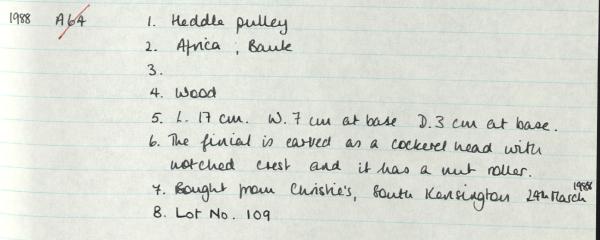 1988 A64 1. Heddle pulley
2. Africa ; Baule
3.
4. Wood
5. L. 17 cm. W. 7 cm at base D. 3 cm at base.
6. The finial is carved as a cockerel head with
notched crest and it has a nut roller.
7. Bought from Christie's, South Kensington 24th March 1988
8. Lot No. 109